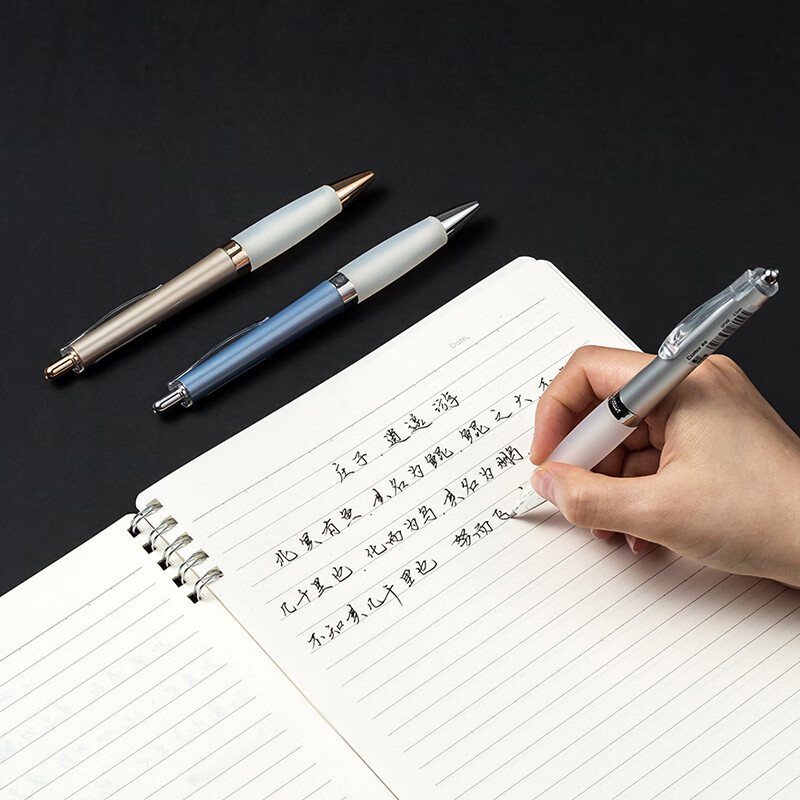 Date.
庄子.逍遥游
北冥有鱼.其名为鲲.鲲之大不
几千里也.化而为鸟.其名为鹏.
不知其几千里也 努而飞